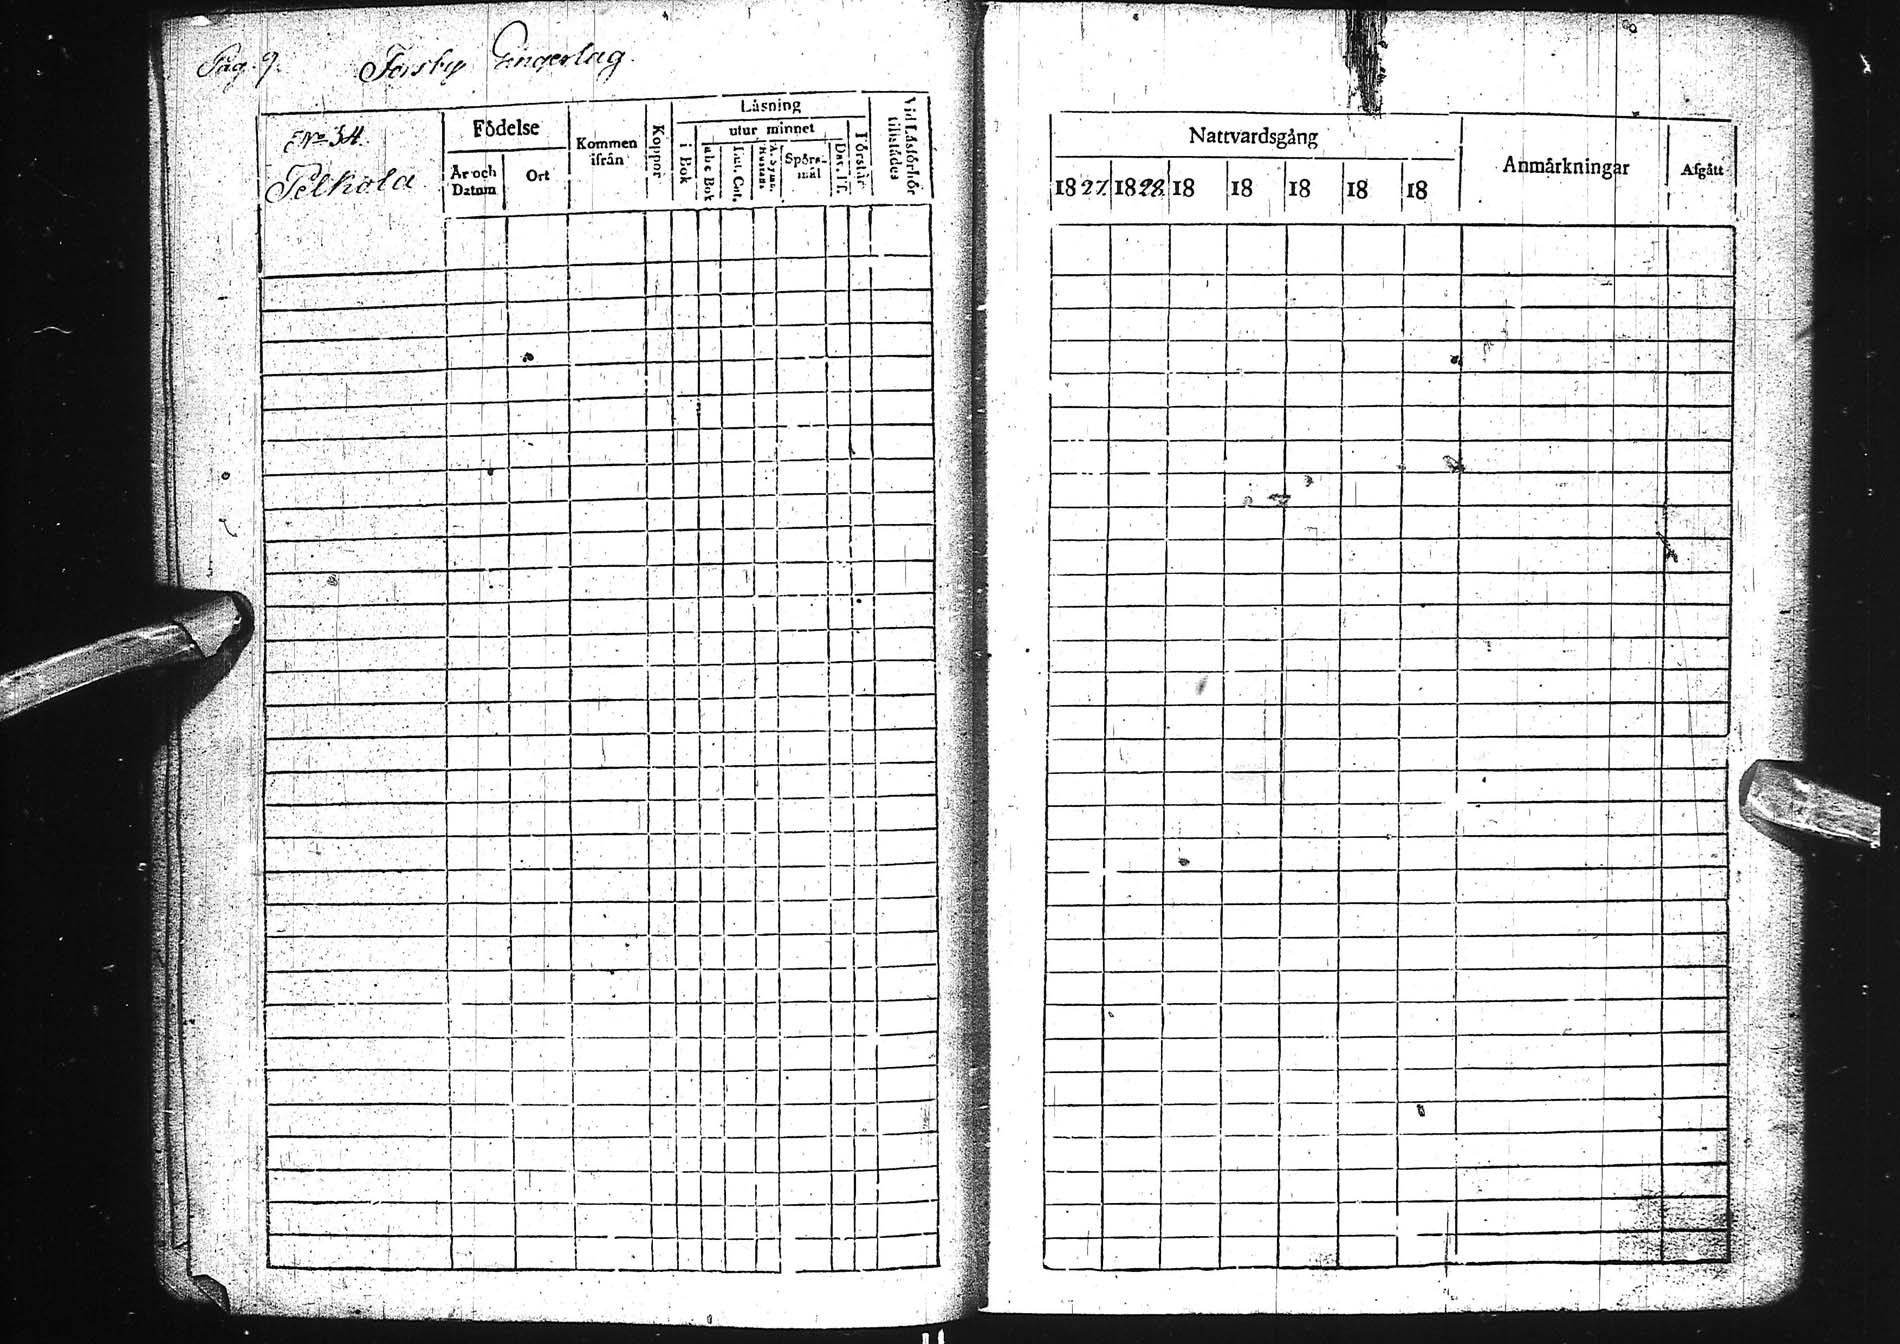 Pag. 9. Forsby Gingerlag.
No 34.
Pelkola
Födelse
År och Datum
Ort
Kommen ifrån
Koppor
Läsning
i Bok
utur minnet
abc Bok
Lut. Cat.
Spörs-mål
Dav. Ps.
Förstår
Vid Läsförhör tillstädes
Nattvardsgång
1827. 1828. 18 18 18 18 18
Anmärkningar
Afgått